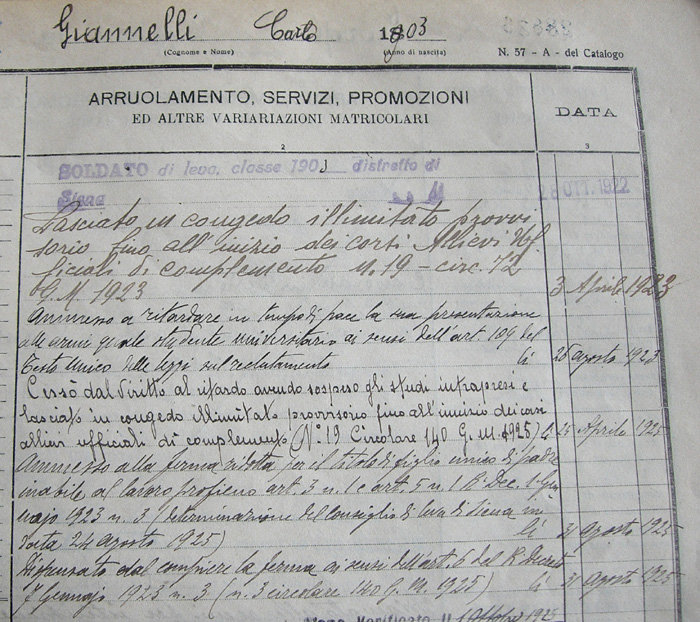 Giannelli Carlo 1903
(Cognome e Nome) (Anno di nascita) N. 57 - A - del Catalogo
ARRUOLAMENTO, SERVIZI, PROMOZIONI
ED ALTRE VARIARIAZIONI MATRICOLARI
DATA
2 3
SOLDATO di leva, classe 1903 distretto di
Siena 28 OTT. 1922
Lasciato in congedo illimitato provvi
sorio fino all'inizio dei corsi Allievi Uf
ficiali di complemento N. 19 - circ. 72
G. M. 1923 3 Aprile 1923
Ammesso a ritardare in tempo di pace la sua presentazione
alle armi quale studente universitario ai sensi dell'art 109 del
Testo Unico delle leggi sul reclutamento li 25 agosto 1923
Cessò dal diritto al ritardo avendo sospeso gli studi intrapresi e
lasciato in congedo illimitato provvisorio fino all'inizio dei corsi
allievi ufficiali di complemento (N° 19 Circolare 140 G. M. 1925) li 25 Aprile 1925
Ammesso alla ferma ridotta per il titolo di figlio unico di padre
inabile al lavoro proficuo art. 3 n. 1 e art. 5 n. 1 R. Dec. 7 Gen
naio 1923 n. 3 (determinazione del Consiglio di leva di Siena in
data 24 agosto 1925) li 31 agosto 1925
Dispensato dal compiere la ferma ai sensi dell'art. 6 del R. Decreto
7 Gennaio 1923 n. 3 (n. 3 circolare 140 G. M. 1925) li 31 agosto 1925